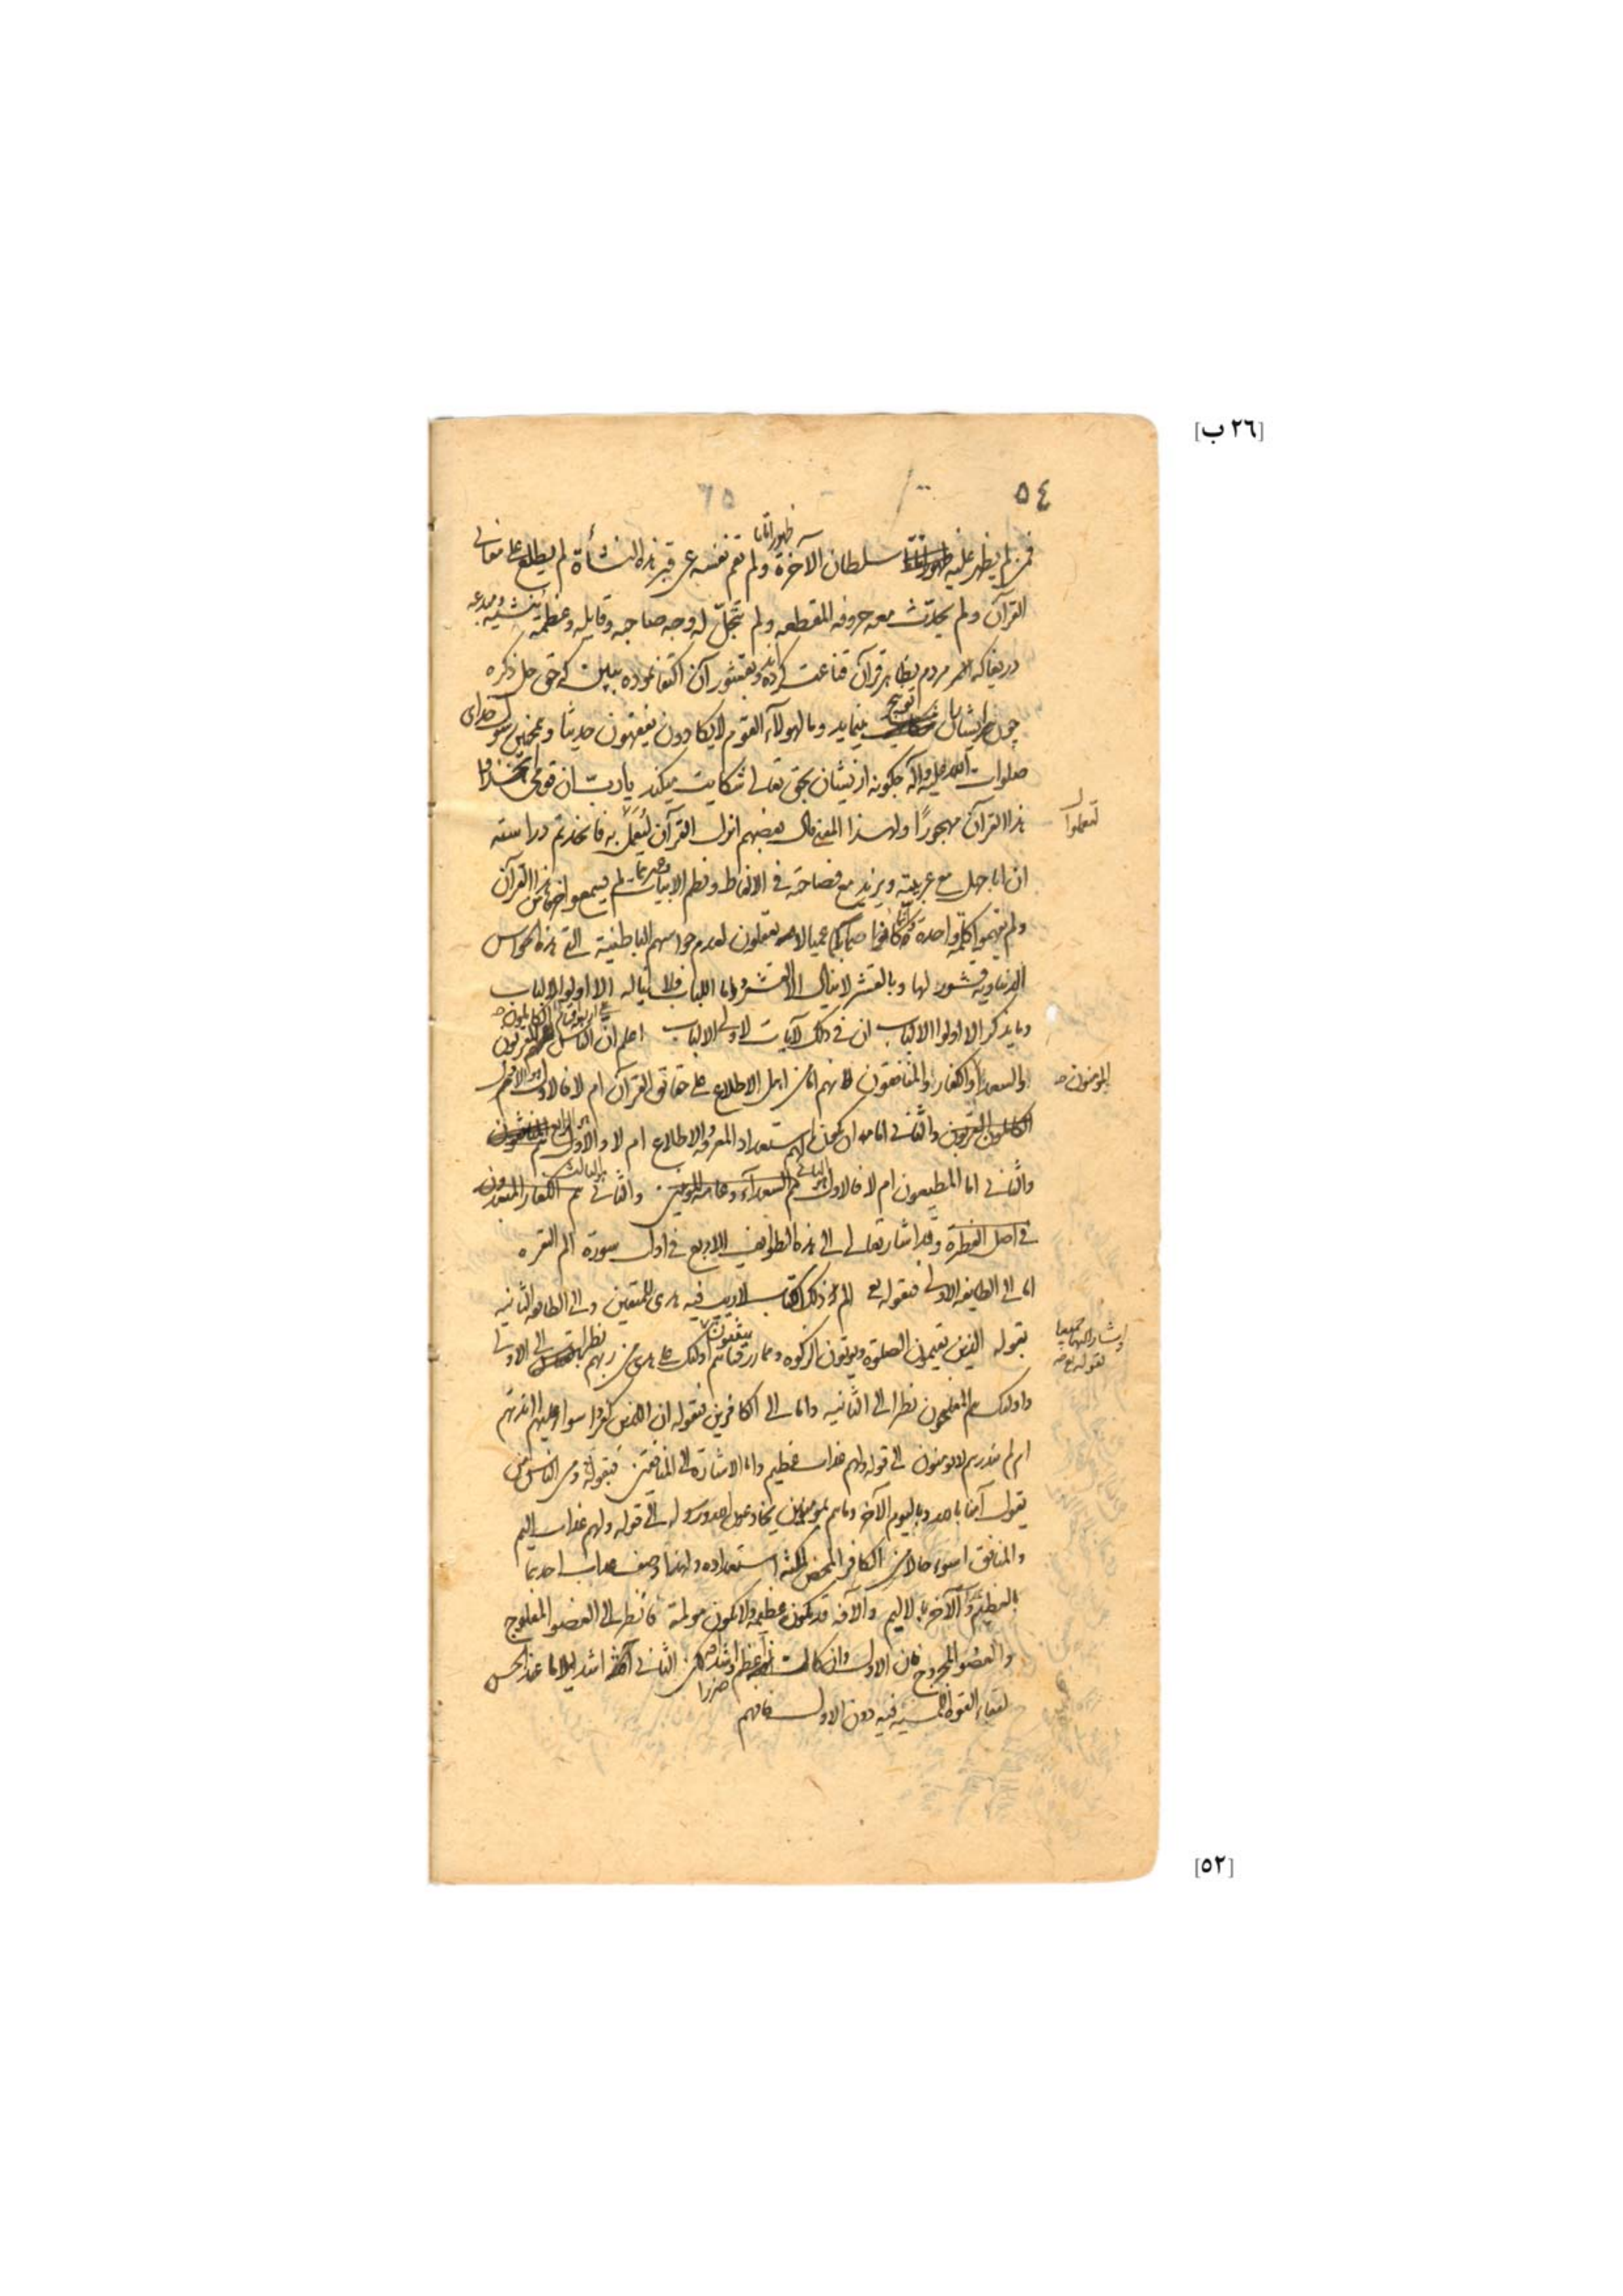 [٢٦ ب]
٥٤
٦٥
ظهورا تاما
فمن لم يظهر عليه سلطان الآخرة ولم تقم نفسه عن قبر هذه النشأة لم يطلع على معانى
القرآن ولم يحدّث معه حروفه المقطعه ولم يتجلّ له وجه صاحبه وقايله وعظمة منشيه ومبدعه
دريغا كه اكثر مردم بظاهر قرآن قناعت كرده اند وبقشور آن اكتفا نموده ببين كه حق جل ذكره
چون ايشان را توبيخ مينمايد وما لهولآء القوم لا يكادون يفقهون حديثا وهمچنين رسول خداى
صلوات الله عليه وآله چگونه ازيشان بحق تعالى شكايت ميكند يا رب ان قومى اتخذوا
هذا القرآن مهجورًا ولهذا المعنى قال بعضهم انزل القرآن ليُعمل به فاتخذتم دراسته
ليعملوا
ان ابا جهل مع عربيته ويزيد مع فصاحته فى الالفاظ ونظم الابيات وغيرهما لم يسمعوا حرفا من هذا القرآن
ولم يفهموا كلمة واحدة كانوا صما بكما عميا لا يعقلون لعدم حواسهم الباطنية التى هذه الحواس
الدنياوية قشور لها وبالقشر لا ينال الا القشر واما اللباب فلا يناله الا اولوا الالباب
وما يذكر الا اولوا الالباب ان فى ذلك لآيات لاولى الالباب اعلم ان الناس المقربون
والسعداء والكفار والمنافقون لانهم اما من اهل الاطلاع على حقائق القرآن ام لا فالاول
المؤمنون
الكاملون المقربون والثانى اما ان لهم استعداد المعرفة والاطلاع ام لا والاول هم المنافقون
والثانى اما المطيعون ام لا فالاول هم السعدآء وعامة المؤمنين والثانى هم الكفار المتمردون
فى اصل الفطرة وقد اشار تعالى الى هذه الطوايف الاربع فى اول سورة الم البقره
اما الى الطايفه الاولى فبقوله تع الم ذلك الكتاب لا ريب فيه هدى للمتقين والى الطايفه الثانيه
بقوله الذين يقيمون الصلوة ويوتون الزكوة ومما رزقناهم ينفقون اولئك على هدى من ربهم نظرا الى الاولى
واشار اليهما جميعا
بقوله تع
واولئك هم المفلحون نظرا الى الثانيه واما الى الكافرين فبقوله ان الذين كفروا سواء عليهم اانذرتهم
ام لم تنذرهم لا يومنون الى قوله ولهم عذاب عظيم واما الاشارة الى المنافقين فبقوله ومن الناس من
يقول آمنا بالله وباليوم الآخر وما هم بمومنين يخادعون الله ورسوله الى قوله ولهم عذاب اليم
والمنافق اسوء حالا من الكافر المحض استعداده ولهذا وصف عذاب احدهما
بالعظيم والآخر بالاليم والآفه قد تكون عظيمه ولا تكون مولمة فانظر الى العضو المفلوج
والعضو المجروح فان الاول وان كانت اعظم واشد ضررا لكن الثانى اشد ايلاما عند الحس
لبقاء القوة الحسيه فيه دون الاول فافهم
[٥٢]